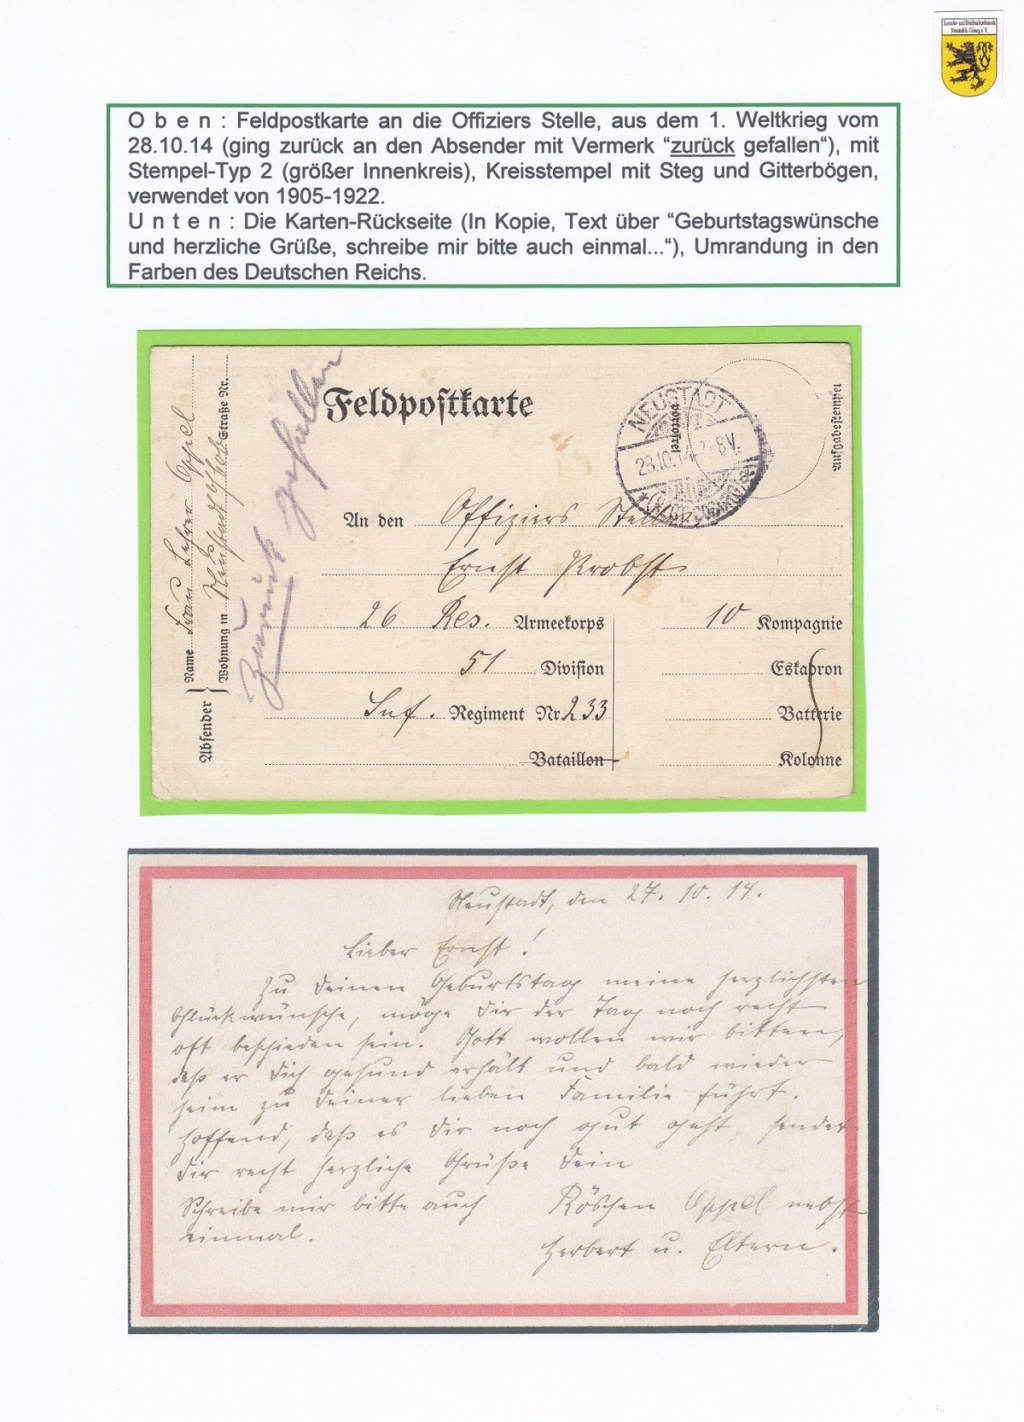 Sammler- und Briefmarkenfreunde
Neustadt b. Coburg e. V.
O b e n : Feldpostkarte an die Offiziers Stelle, aus dem 1. Weltkrieg vom
28.10.14 (ging zurück an den Absender mit Vermerk “zurück gefallen“), mit
Stempel-Typ 2 (größer Innenkreis), Kreisstempel mit Steg und Gitterbögen,
verwendet von 1905-1922.
U n t e n : Die Karten-Rückseite (In Kopie, Text über “Geburtstagswünsche
und herzliche Grüße, schreibe mir bitte auch einmal...“), Umrandung in den
Farben des Deutschen Reichs.
Absender
Name Frau Lehrer Oppel
Wohnung in Neustadt
Straße Nr.
zurück gefallen
Feldpostkarte
NEUSTADT
28.10.14 7-8V.
(HERZOGT. COBURG)
portofrei
Ausgabestempel
An den Offiziers Stellv.
Ernst Probst
26 Res. Armeekorps 10 Kompagnie
51 Division Eskadron
Inf. Regiment Nr. 233 Batterie
Bataillon Kolonne
Neustadt, den 27. 10. 14.
Lieber Ernst!
Zu Deinem Geburtstag meine herzlichsten
Glückwünsche, möge Dir der Tag noch recht
oft beschieden sein. Gott wollen wir bitten,
daß er Dich gesund erhält und bald wieder
heim zu Deiner lieben Familie führt.
Hoffend, daß es Dir noch gut geht, sendet
Dir recht herzliche Grüße Dein
Schreibe mir bitte auch Röschen Oppel nebst
einmal. Herbert u. Eltern.